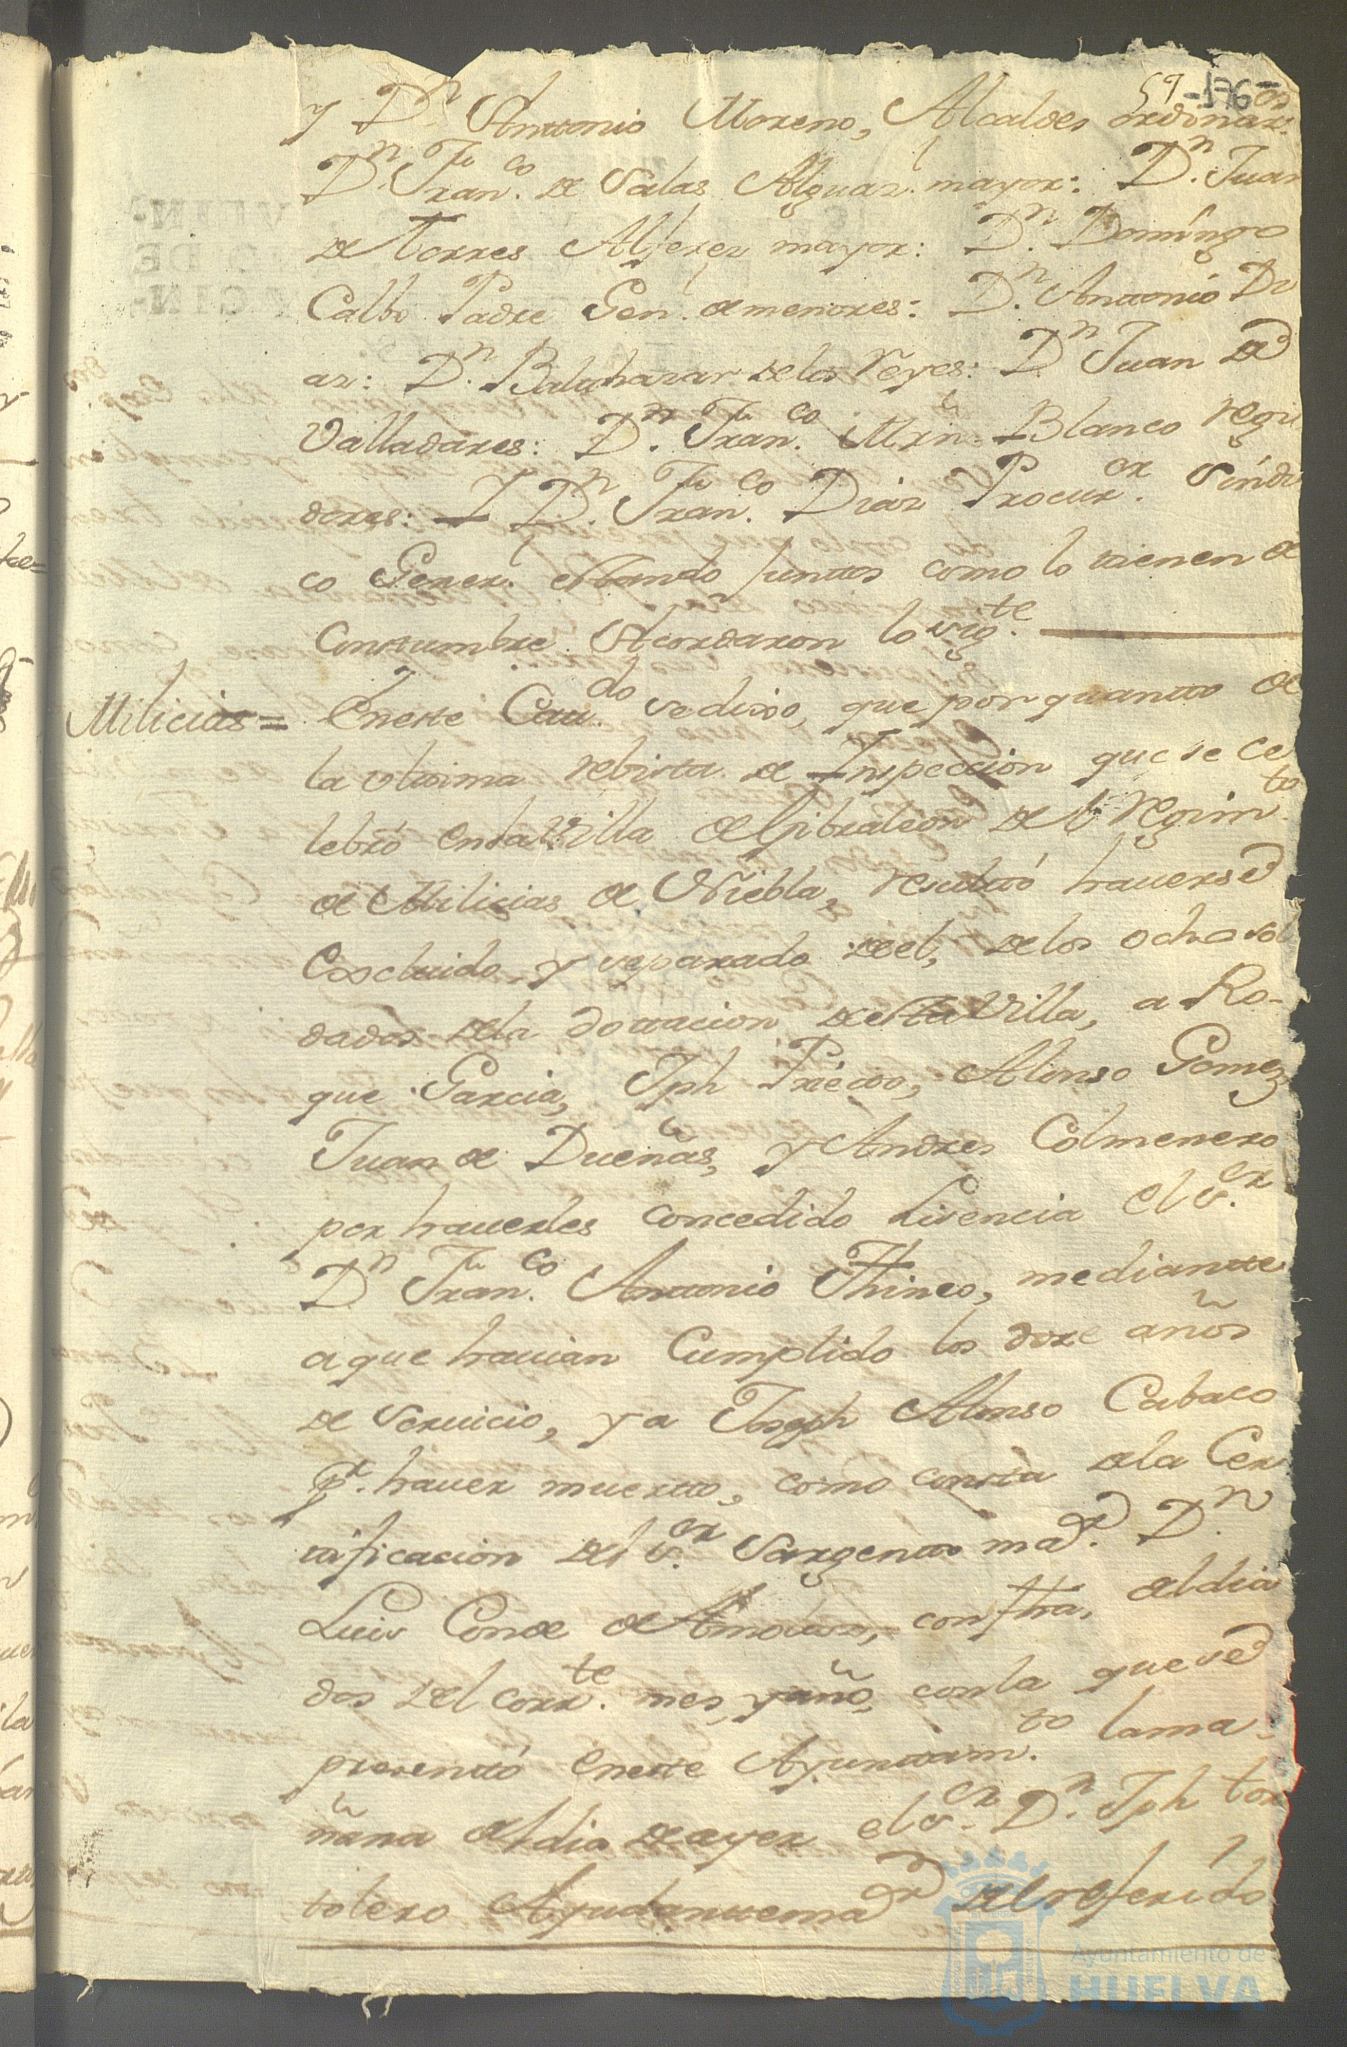 59 -176-
y Dn Antonio Moreno, Alcaldes ordinar.os
Dn. Fran.co de Salas Alguaz.l mayor: Dn. Juan
de Torres Alferez mayor: Dn. Domingo
Calbo Padre Gen.l de menores: Dn. Antonio Di
az: Dn. Balthazar de los Reyes: Dn Juan de
Valladares: Dn. Fran.co Mrn. Blanco regi
dores: Y Dn. Fran.co Diaz Procur.or Sindi
co Gener.l estando juntos como lo tienen de
Constumbre Acordaron lo sig.te
Milicias= En este Cau.do se dixo, que por quantto de
la ultima rebista de Inspeccion que se ce
lebró en la Villa de Gibraleon de el Regim.to
de Milicias de Niebla, resultó hauerse
Excluido y separado de el, de los ocho sol
dados de la dottacion de esta Villa, a Ro-
que Garcia, Jph Prietto, Alonso Gomez
Juan de Dueñas, y Andres Colmenero
por hauerles concedido Lisencia el S.or
Dn Fran.co Antonio Thineo, mediantte
a que hauian Cumplido los doze años
de Seruicio, y a Joseph Alonso Cabaco
pr. hauer muertto, como consta de la Cer
tificacion del S.or Sargentto mar. Dn
Luis Conde de , con fha, del dia
dos del corr.te mes, y año, con la que se
presenttó en este Ayunttam.to la ma-
ñana del dia de ayer el S.or Dn. Jph tor
tolero Ayudante mar del referido
Ayuntamiento de
HUELVA